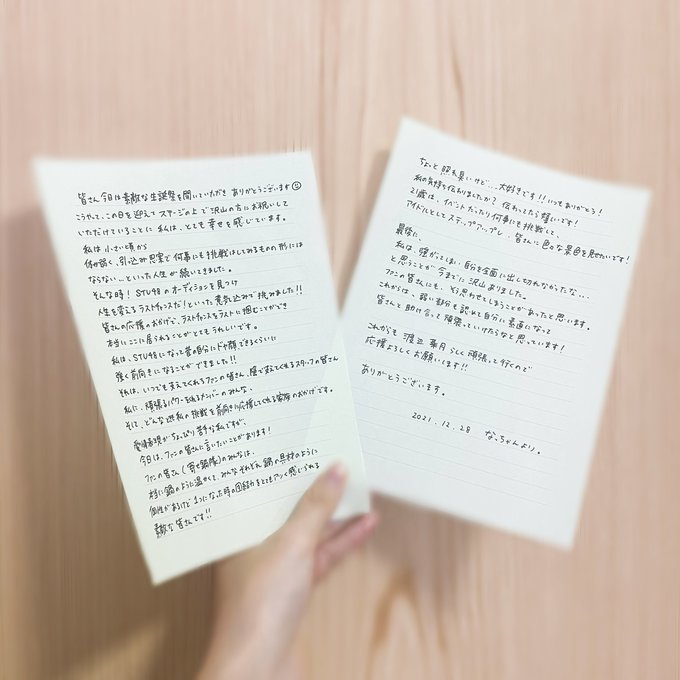 皆さん今日は素敵な生誕祭を開いていただき ありがとうございます
こうやって、この日を迎えて ステージの上で 沢山の方にお祝いして
いただけていることに 私は、とても幸せを感じています。
私は 小さい頃から
体が弱く、引込み思案で 何事にも挑戦はしてみるものの 形には
ならない…といった人生が 続いてきました。
そんな時！STU48のオーディションを見つけ
人生を変えるラストチャンスだ！といった意気込みで挑みました!!
皆さんの応援のおかげで、ラストチャンスをラストに掴むことができ
本当にここに居られることがとてもうれしいです。
私は、STU48になって昔の自分にドヤ顔できるくらいに
強く前向きになることができました!!
それは、いつでも支えてくれるファンの皆さん、陰で支えてくれるスタッフの皆さん
私に、頑張るパワーをくれるメンバーのみんな、
そして、どんな時も私の挑戦を前向きに応援してくれる家族のおかげです。
愛情表現がちょっぴり苦手な私ですが、
今日は、ファンの皆さんに言いたいことがあります！
ファンの皆さん(寄せ鍋隊)のみんなは、
本当に鍋のように温かくて、みんなそれぞれ鍋の具材のように
個性があるけど 1つになった時の団結力をとてもアツく感じられる
素敵な皆さんです!!
ちょっと照れ臭いけど…大好きです!!いつもありがとう！
私の気持ち伝わりましたか？伝わってたら嬉しいです！
21歳は、イベントだったり何事にも挑戦して、
アイドルとしてステップアップし、皆さんに色々な景色を見せたいです！
最後に
私は、強がってしまい自分を全面に出し切れなかったな…
と思うことが今までに沢山ありました。
ファンの皆さんにも、そう思わせてしまうことがあったと思います。
これからは、弱い部分も認めて自分に素直になって
皆さんと助け合って頑張っていけたらなと思っています！
これからも 渡辺 菜月らしく頑張って行くので
応援よろしくお願いします!!
ありがとうございます。
2021.12.28 なっちゃんより。